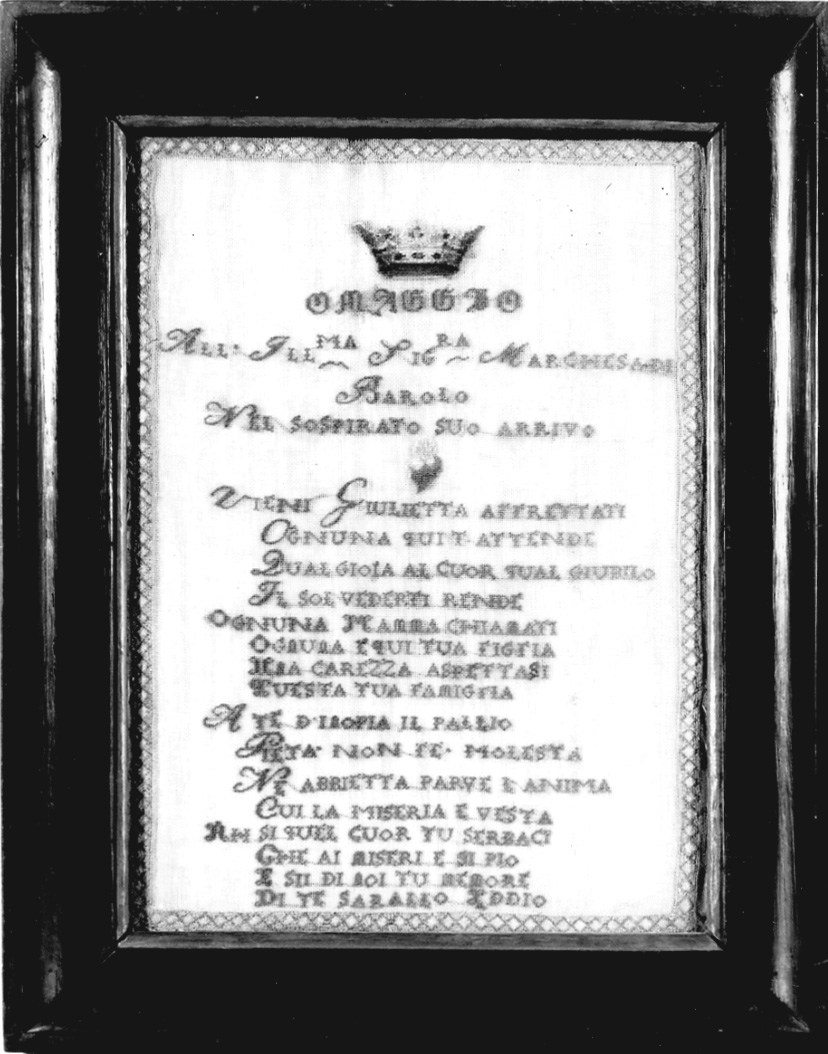 OMAGGIO
ALL. ILLMA SIGRA MARCHESA DI
BAROLO
NEL SOSPIRATO SUO ARRIVO
VIENI GIULIETTA AFFRETTATI
OGNUNA QUI T. ATTENDE
QUAL GIOIA AL CUOR QUAL GIUBILO
IL SOL VEDERTI RENDE
OGNUNA MAMMA CHIAMATI
OGNUNA E QUI TUA FIGLIA
UNA CAREZZA ASPETTASI
QUESTA TUA FAMIGLIA
A TE D'INOPIA IL PALLIO
PIETA. NON FE. MOLESTA
NE ABBIETTA PARVE E ANIMA
CUI LA MISERIA E VESTA
AH SI QUEL CUOR TU SERBACI
CHE AI MISERI E SI PIO
E SII DI NOI TU MEMORE
DI TE SARALLO IDDIO